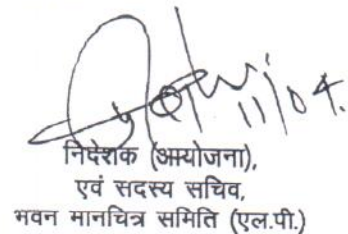 11/04.
निदेशक (आयोजना),
एवं सदस्य सचिव,
भवन मानचित्र समिति (एल.पी.)